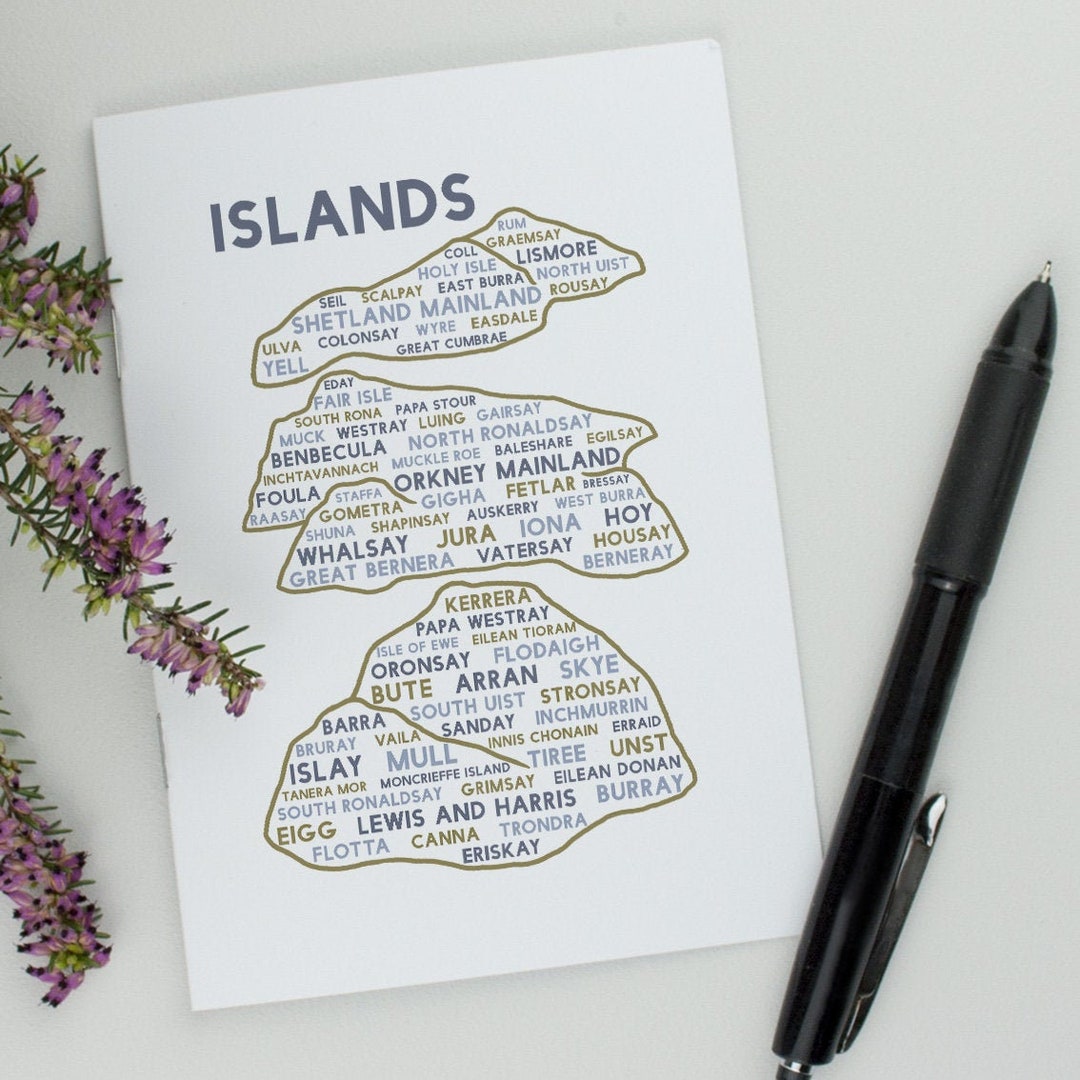 ISLANDS
RUM
GRAEMSAY
COLL LISMORE
HOLY ISLE NORTH UIST
SEIL SCALPAY EAST BURRA ROUSAY
SHETLAND MAINLAND
ULVA COLONSAY WYRE EASDALE
YELL GREAT CUMBRAE
EDAY
FAIR ISLE
SOUTH RONA PAPA STOUR
MUCK WESTRAY LUING GAIRSAY
BENBECULA NORTH RONALDSAY
INCHTAVANNACH MUCKLE ROE BALESHARE EGILSAY
FOULA ORKNEY MAINLAND
RAASAY STAFFA GIGHA FETLAR BRESSAY
GOMETRA AUSKERRY WEST BURRA
SHUNA SHAPINSAY IONA HOY
WHALSAY JURA VATERSAY HOUSAY
GREAT BERNERA BERNERAY
KERRERA
PAPA WESTRAY
ISLE OF EWE EILEAN TIORAM
ORONSAY FLODAIGH
BUTE ARRAN SKYE
SOUTH UIST STRONSAY
BARRA SANDAY INCHMURRIN
BRURAY VAILA INNIS CHONAIN ERRAID
ISLAY MULL TIREE UNST
TANERA MOR MONCRIEFFE ISLAND EILEAN DONAN
SOUTH RONALDSAY GRIMSAY BURRAY
EIGG LEWIS AND HARRIS
FLOTTA CANNA TRONDRA
ERISKAY